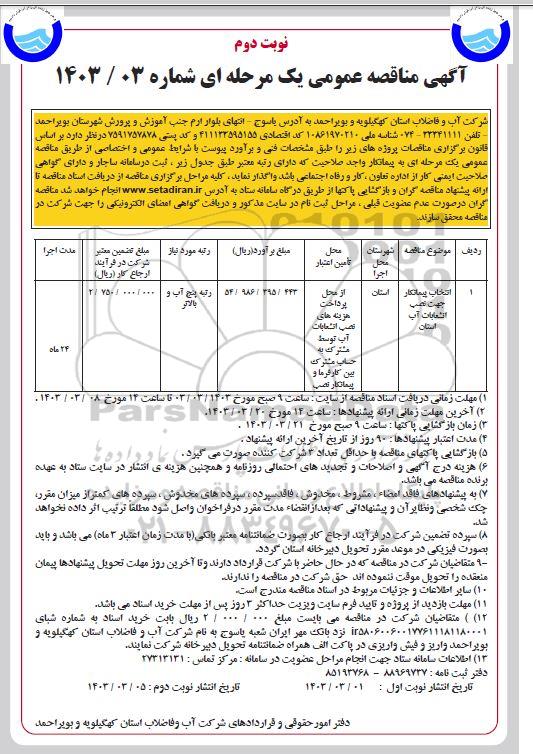 نوبت دوم
آگهی مناقصه عمومی یک مرحله ای شماره ۰۳ / ۱۴۰۳
شرکت آب و فاضلاب استان کهگیلویه و بویراحمد به آدرس یاسوج – انتهای بلوار ارم جنب آموزش و پرورش شهرستان بویراحمد
– تلفن ۳۳۳۴۱۱۱۱ – ۰۷۴ شناسه ملی ۱۰۸۶۱۹۷۰۲۱۰ کد اقتصادی ۴۱۱۱۳۳۵۹۵۱۵۵ و کد پستی ۷۵۹۱۷۵۷۸۷۸ درنظر دارد بر اساس
قانون برگزاری مناقصات پروژه های زیر را طبق مشخصات فنی و برآورد پیوست با شرایط عمومی و اختصاصی از طریق مناقصه
عمومی یک مرحله ای به پیمانکار واجد صلاحیت که دارای رتبه معتبر طبق جدول زیر ، ثبت درسامانه ساجار و دارای گواهی
صلاحیت ایمنی کار از اداره تعاون ،کار و رفاه اجتماعی باشد واگذار نماید ، کلیه مراحل برگزاری مناقصه از دریافت اسناد مناقصه تا
ارائه پیشنهاد مناقصه گران و بازگشایی پاکتها از طریق درگاه سامانه ستاد به آدرس www.setadiran.ir انجام خواهد شد مناقصه
گران درصورت عدم عضویت قبلی ، مراحل ثبت نام در سایت مذکور و دریافت گواهی امضای الکترونیکی را جهت شرکت در
مناقصه محقق سازند.
ردیف موضوع مناقصه شهرستان محل اجرا محل تأمین اعتبار مبلغ برآورد(ریال) رتبه مورد نیاز مبلغ تضمین معتبر شرکت در فرآیند ارجاع کار (ریال) مدت اجرا
۱ انتخاب پیمانکار جهت نصب انشعابات آب استان استان از محل پرداخت هزینه های نصب انشعابات آب توسط مشترک به حساب مشترک بین کارفرما و پیمانکار نصب ۵۴ / ۹۸۶ / ۳۹۵ / ۴۴۳ رتبه پنج آب و بالاتر ۲ / ۷۵۰ / ۰۰۰ / ۰۰۰ ۲۴ ماه
۱) مهلت زمانی دریافت اسناد مناقصه از سایت : ساعت ۹ صبح مورخ ۱۴۰۳ / ۰۳ / ۰۳ تا ساعت ۱۴ مورخ ۰۸ / ۰۳ / ۱۴۰۳ .
۲) آخرین مهلت زمانی ارائه پیشنهادها : ساعت ۱۴ مورخ ۲۰ / ۰۳ / ۱۴۰۳.
۳) زمان بازگشایی پاکتها : ساعت ۹ صبح مورخ ۲۱ / ۰۳ / ۱۴۰۳ .
۴) مدت اعتبار پیشنهادها : ۹۰ روز از تاریخ آخرین ارائه پیشنهاد .
۵) بازگشایی پاکتهای مناقصه با حداقل تعداد ۳ شرکت کننده صورت می گیرد .
۶) هزینه درج آگهی و اصلاحات و تجدید های احتمالی روزنامه و همچنین هزینه ی انتشار در سایت ستاد به عهده
برنده مناقصه می باشد.
۷) به پیشنهادهای فاقد امضاء ، مشروط ، مخدوش ، فاقدسپرده ، سپرده های مخدوش ، سپرده های کمتراز میزان مقرر،
چک شخصی ونظایرآن و پیشنهاداتی که بعدازانقضاء مدت مقرر درفراخوان واصل شود مطلقا ترتیب اثر داده نخواهد
شد.
۸) سپرده تضمین شرکت در فرآیند ارجاع کار بصورت ضمانتنامه معتبر بانکی(با مدت زمان اعتبار ۳ ماه) می باشد و باید
بصورت فیزیکی در موعد مقرر تحویل دبیرخانه استان گردد.
۹- متقاضیان شرکت در مناقصه که در حال حاضر با شرکت قرارداد دارند وتا آخرین روز مهلت تحویل پیشنهادها پیمان
منعقده را تحویل موقت ننموده اند حق شرکت در مناقصه را ندارند.
۱۰) سایر اطلاعات و جزئیات مربوط در اسناد مناقصه مندرج است.
۱۱) مهلت بازدید از پروژه و تایید فرم سایت ویزیت حداکثر ۳ روز پس از مهلت خرید اسناد می باشد.
۱۲) ) متقاضیان شرکت در مناقصه می بایست مبلغ ۰۰۰ / ۰۰۰ / ۲ ریال بابت خرید اسناد به شماره شبای
ir۵۸۰۶۰۰۶۰۰۱۷۷۶۱۱۱۸۱۱۸۰۰۰۱ نزد بانک مهر ایران شعبه یاسوج به نام شرکت آب و فاضلاب استان کهگیلویه و
بویراحمد واریز و فیش واریزی در پاکت الف همراه ضمانتنامه تحویل دبیرخانه شرکت نمایند.
۱۳) اطلاعات سامانه ستاد جهت انجام مراحل عضویت در سامانه : مرکز تماس : ۲۷۳۱۳۱۳۱
دفتر ثبت نامه : ۸۸۹۶۹۷۳۷ – ۸۵۱۹۳۷۶۸
تاریخ انتشار نوبت اول : ۰۱ / ۰۳ / ۱۴۰۳ تاریخ انتشار نوبت دوم : ۰۵ / ۰۳ / ۱۴۰۳
دفتر امور حقوقی و قراردادهای شرکت آب وفاضلاب استان کهگیلویه و بویراحمد